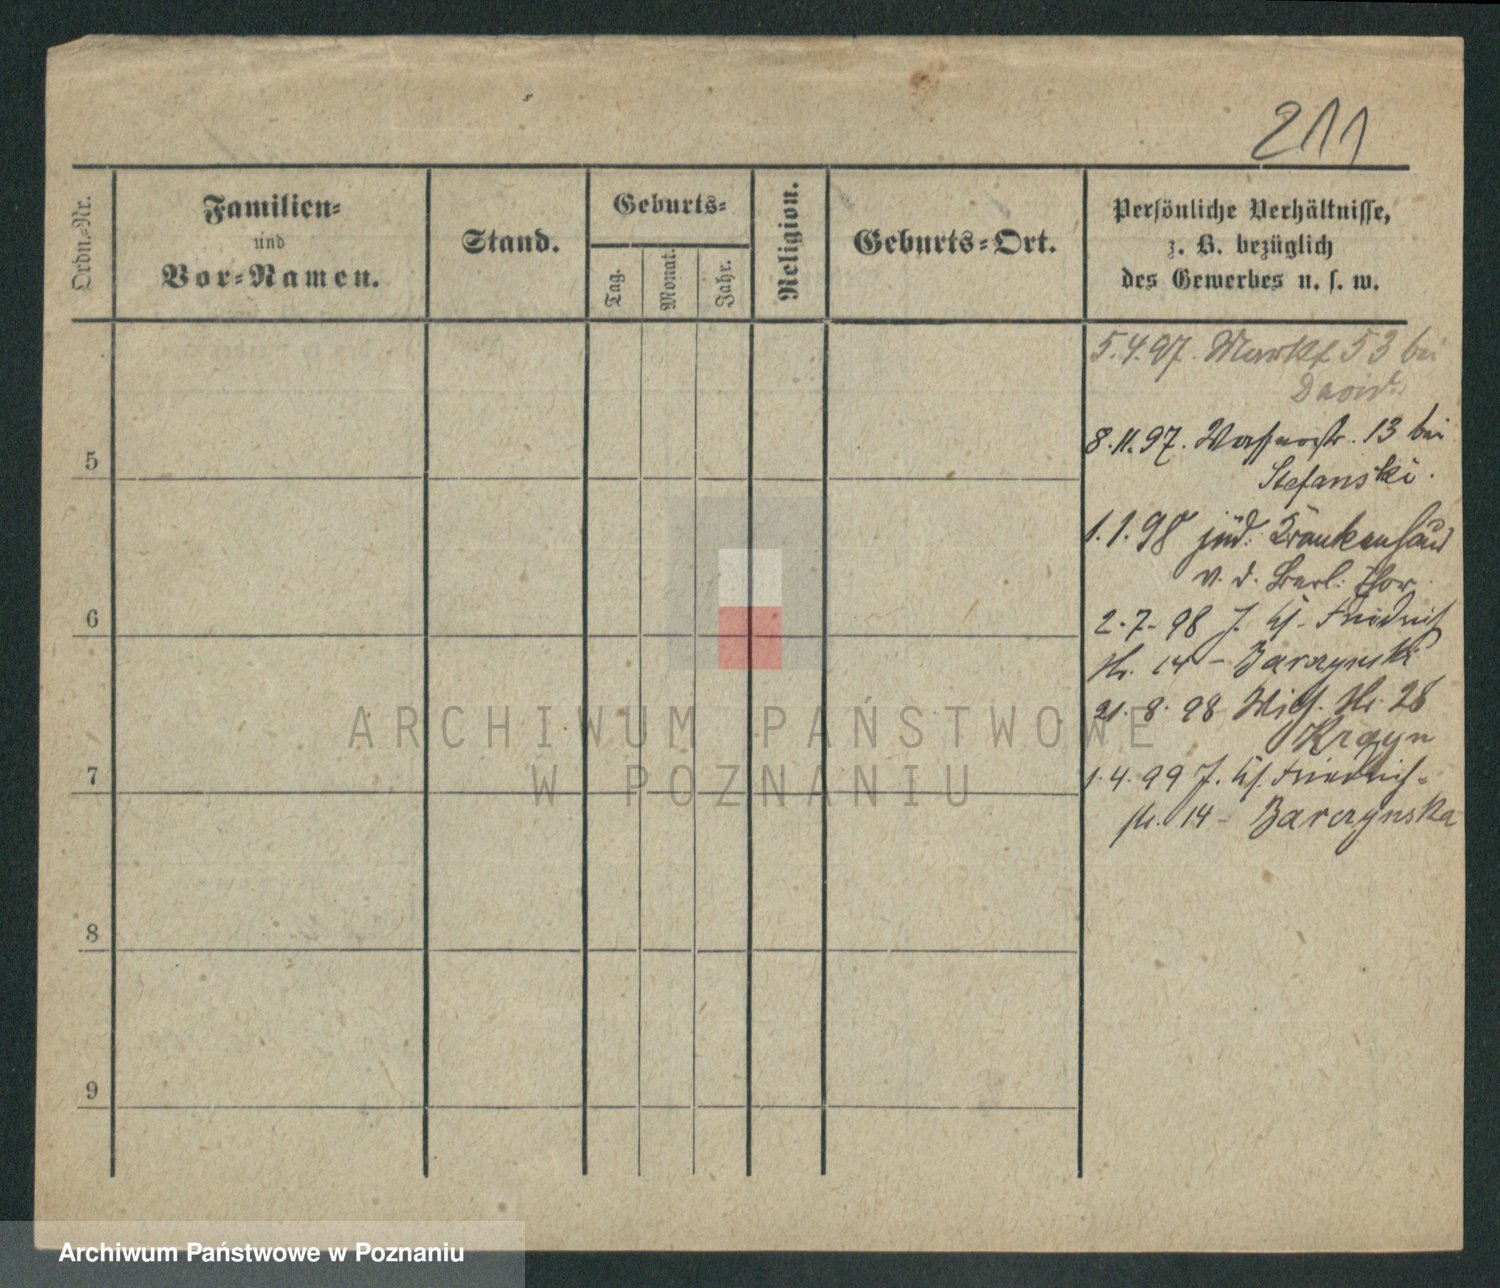 211
Ordn.-Nr.
Familien-
und
Vor-Namen.
Stand.
Geburts-
Tag.
Monat.
Jahr.
Religion.
Geburts-Ort.
Persönliche Verhältnisse,
z. B. bezüglich
des Gewerbes u. s. w.
5.4.97. Markt 53 bei
David.
8.11.97. 13 bei
Stefanski.
1.1.98 jüd. Krankenhaus
v. d. Berl. Thor.
2.7.98 J. Friedrich
Str. 14 -
21.8.98 Str. 28
1.4.99 J. Friedrich-
str. 14 - Barczynska
5
6
7
8
9
ARCHIWUM PAŃSTWOWE
W POZNANIU
Archiwum Państwowe w Poznaniu